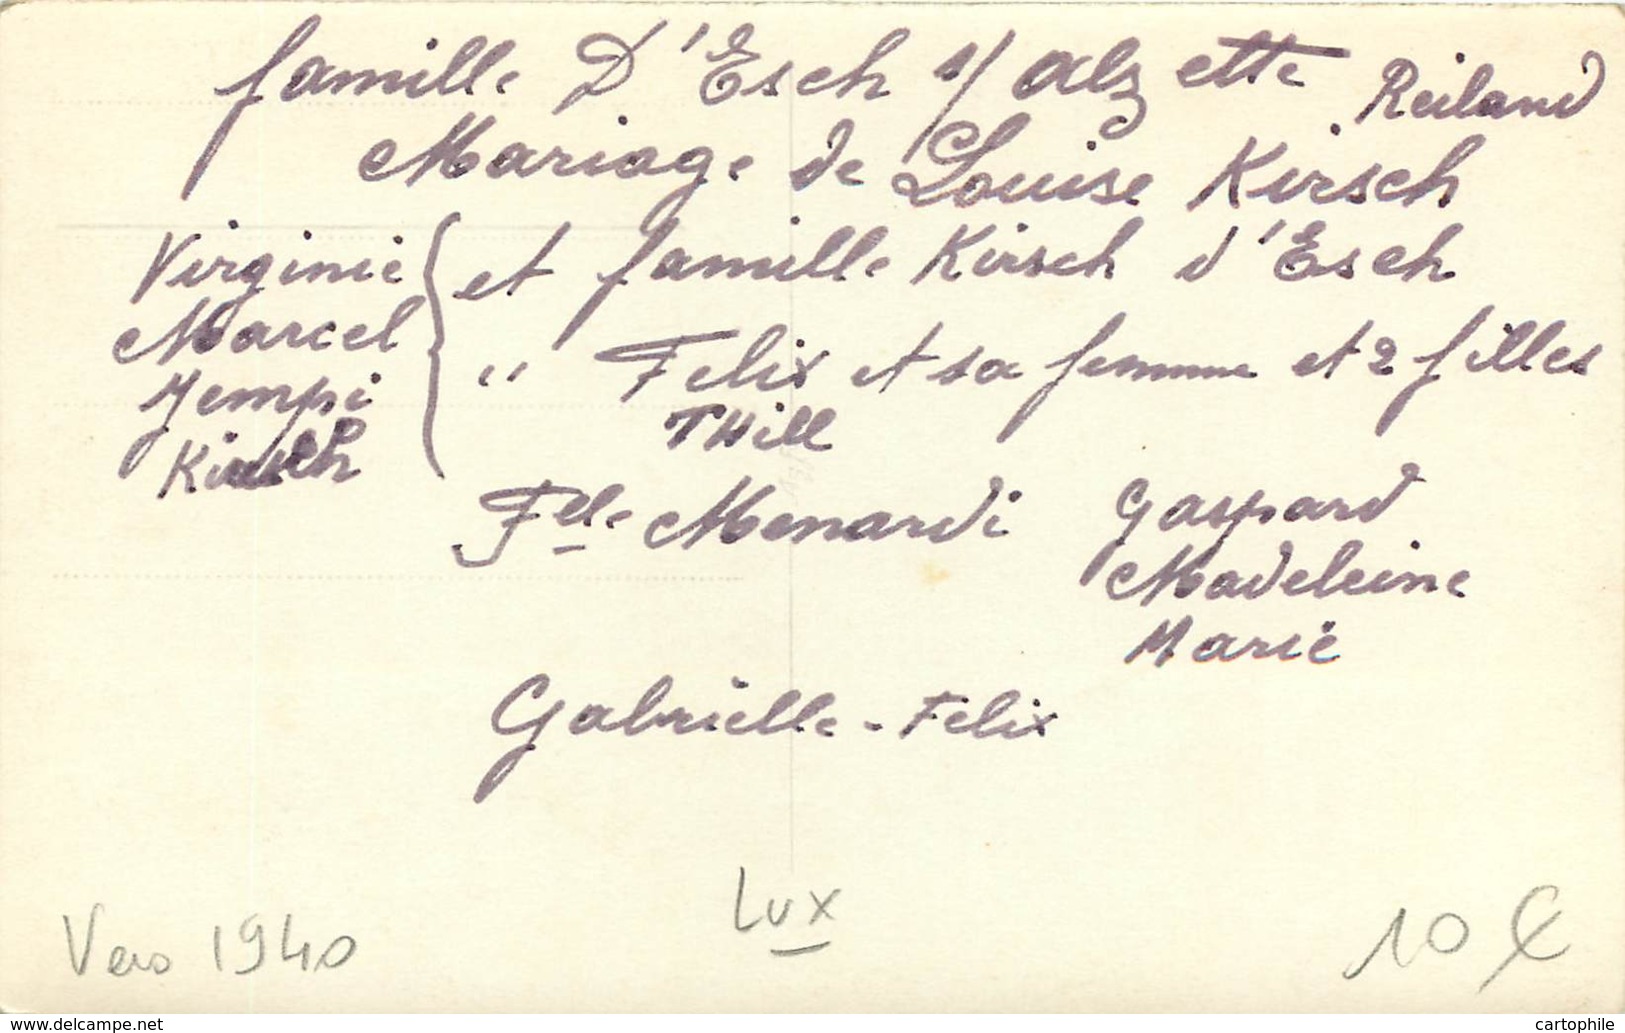 famille D'Esch s/ alzette Reiland
Mariage de Louise Kirsch
Virginie
Marcel
Jempi
Kirsch
et famille Kirsch d'Esch
" Felix et sa femme et 2 filles
THill
Flle Menardi
Gaspard
Madeleine
Marie
Gabrielle - Felix
Vers 1940
Lux
10 €
www.delcampe.net
cartophile